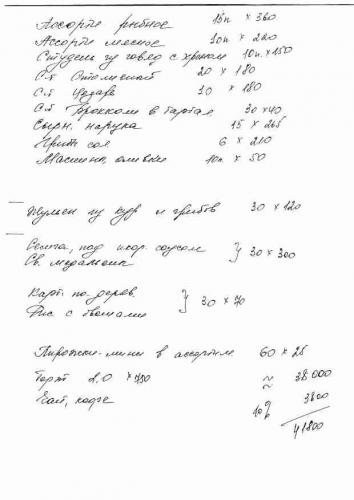 Ассорти рыбное 15п × 360
Ассорти мясное 10п × 220
Студень из говяд с хреном 10п. × 150
С-т Столичный 20 × 180
С-т Цезарь 10 × 180
С-т в тартал 30 × 40
Сырн. тарелка 15 × 265
соя 6 × 210
Маслины, оливки 10п × 50
Жульен из кур и грибов 30 × 120
Семга, под икор. соусом } 30 × 300
Св. медальоны
Карт. по-дерев. } 30 × 70
Рис с овощами
Пирожки-мини в ассортим. 60 × 25
Торт 2.0 × 750 ≈ 38000
Чай, кофе 10% 3800
41800